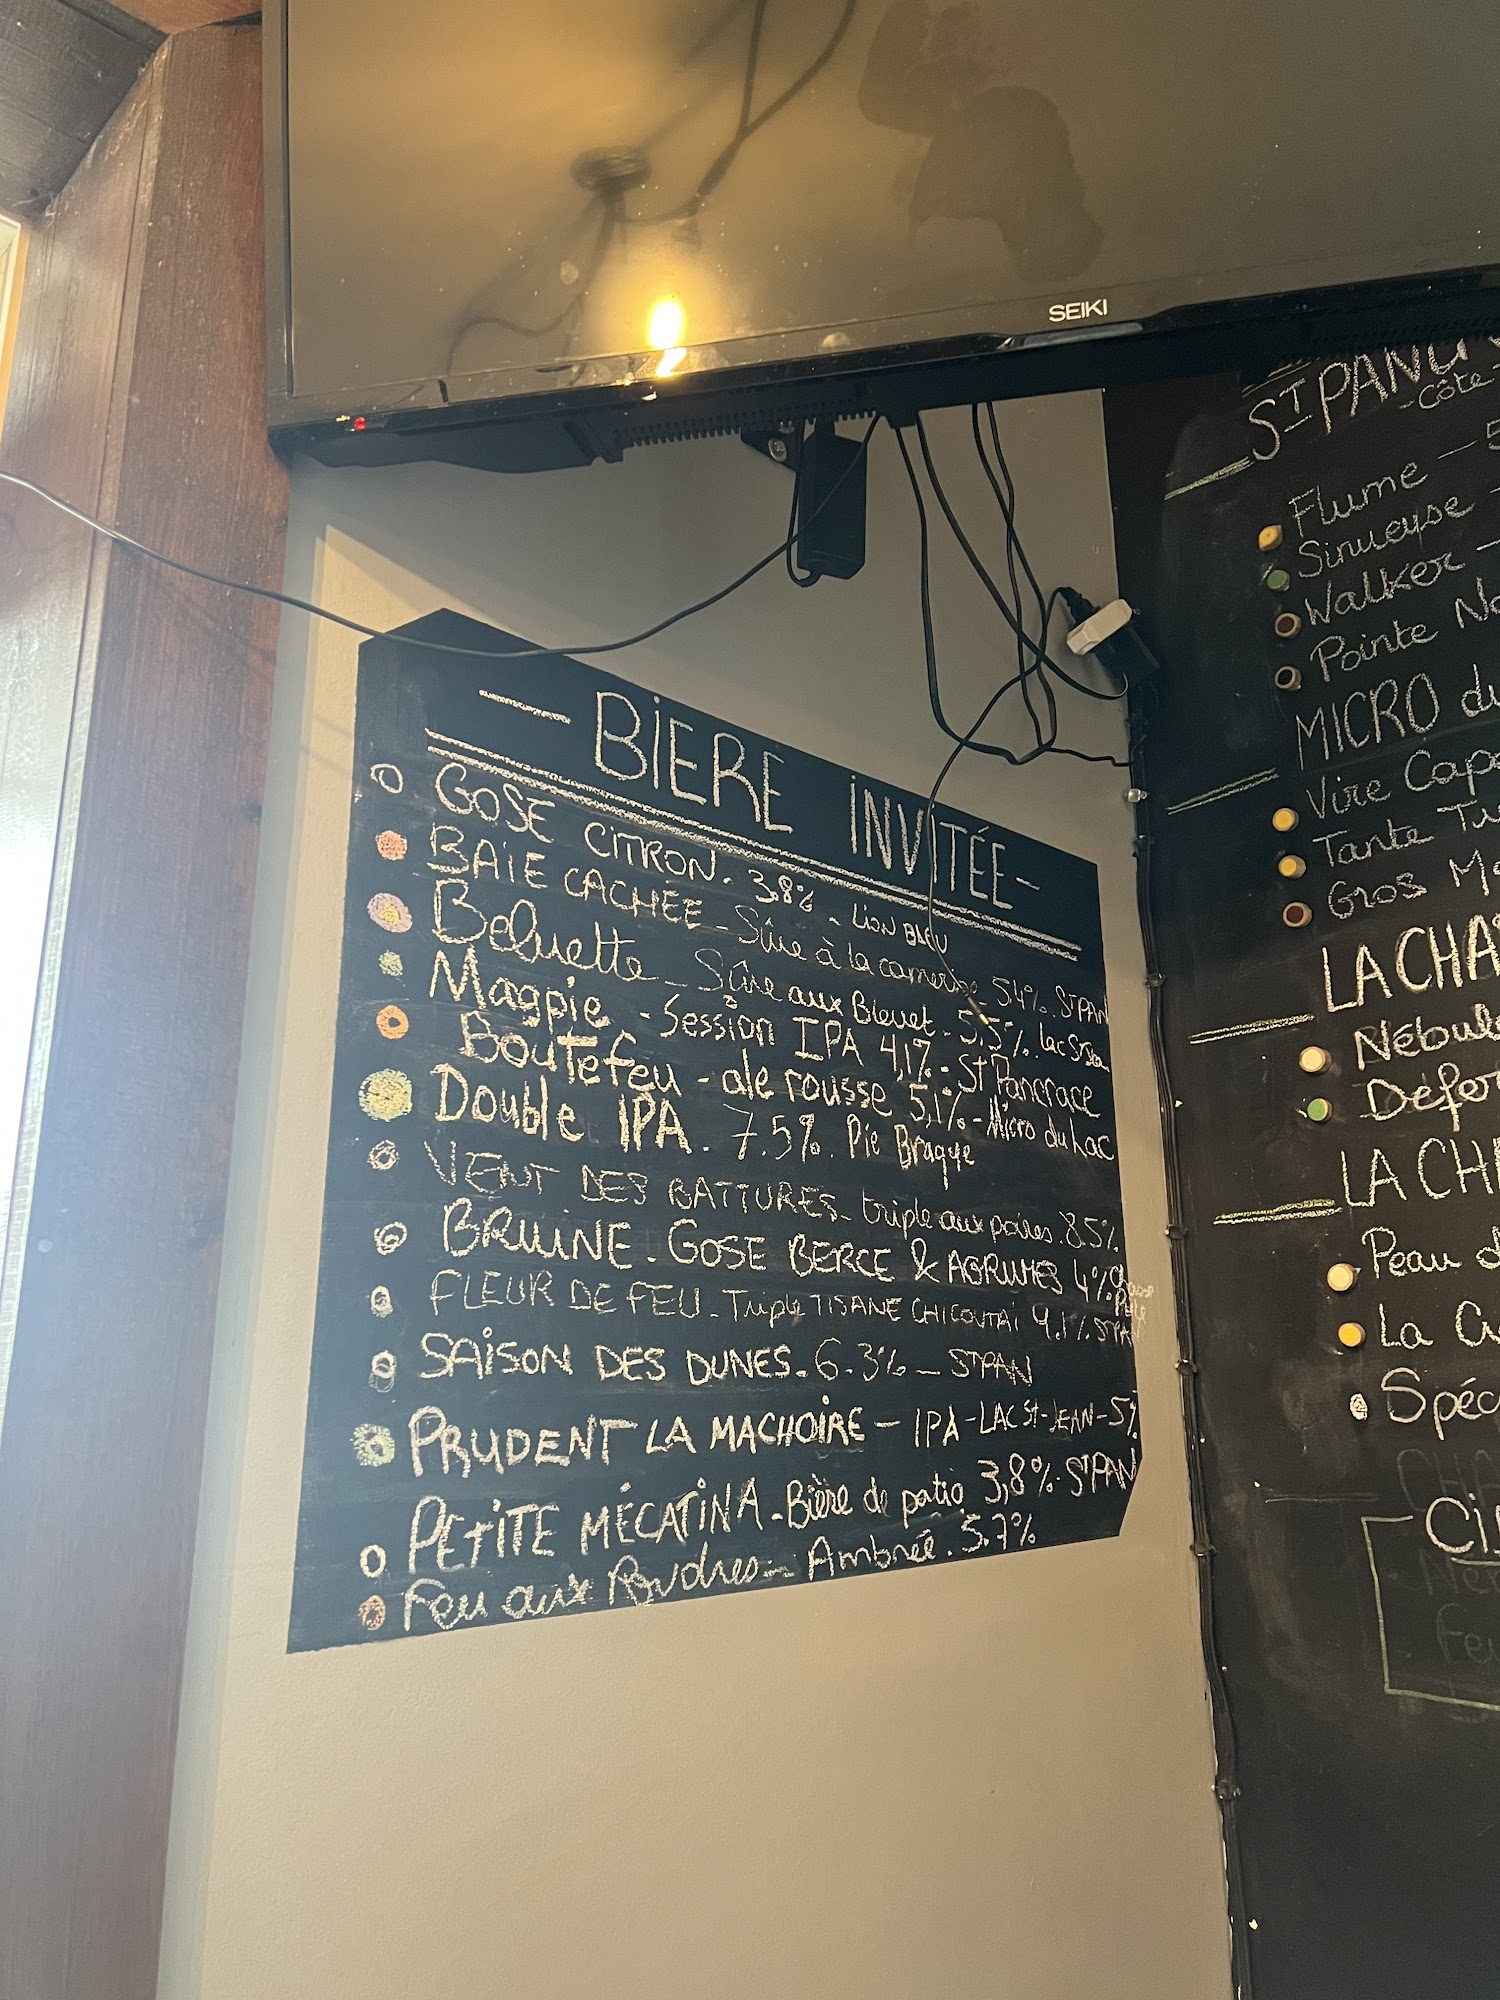 SEIKI
BIÈRE INVITÉE
GOSE CITRON. 3.8% - LION BLEU
BAIE CACHÉE - Sûre à la camerise - 5.4%. ST PAN
Beluette - Sûre aux Bleuet - 5,5%. lac St Jean
Magpie - Session IPA 4,1% - St Pancrace
Boutefeu - ale rousse 5,1% - Micro du Lac
Double IPA. 7.5%. Pie Braque
VENT DES BATTURES - triple aux poires. 8.5%
BRUINE. GOSE BERCE & AGRUMES 4% Chasse Pinte
FLEUR DE FEU - Triple TISANE CHICOUTAI 9.1% ST PAN
SAISON DES DUNES. 6.3% - ST PAN
PRUDENT LA MACHOIRE - IPA - LAC St-JEAN - 5%
PETITE MÉCATINA - Bière de patio 3,8% ST PAN
Feu aux Poudres - Ambrée. 5.7%
ST PANC
-Côte
Flume - 5
Sinueuse -
Walker -
Pointe No
MICRO du
Vire Capo
Tante Tu
Gros Mo
LA CHA
Nébule
Défor
LA CH
Peau d
La
Spéc